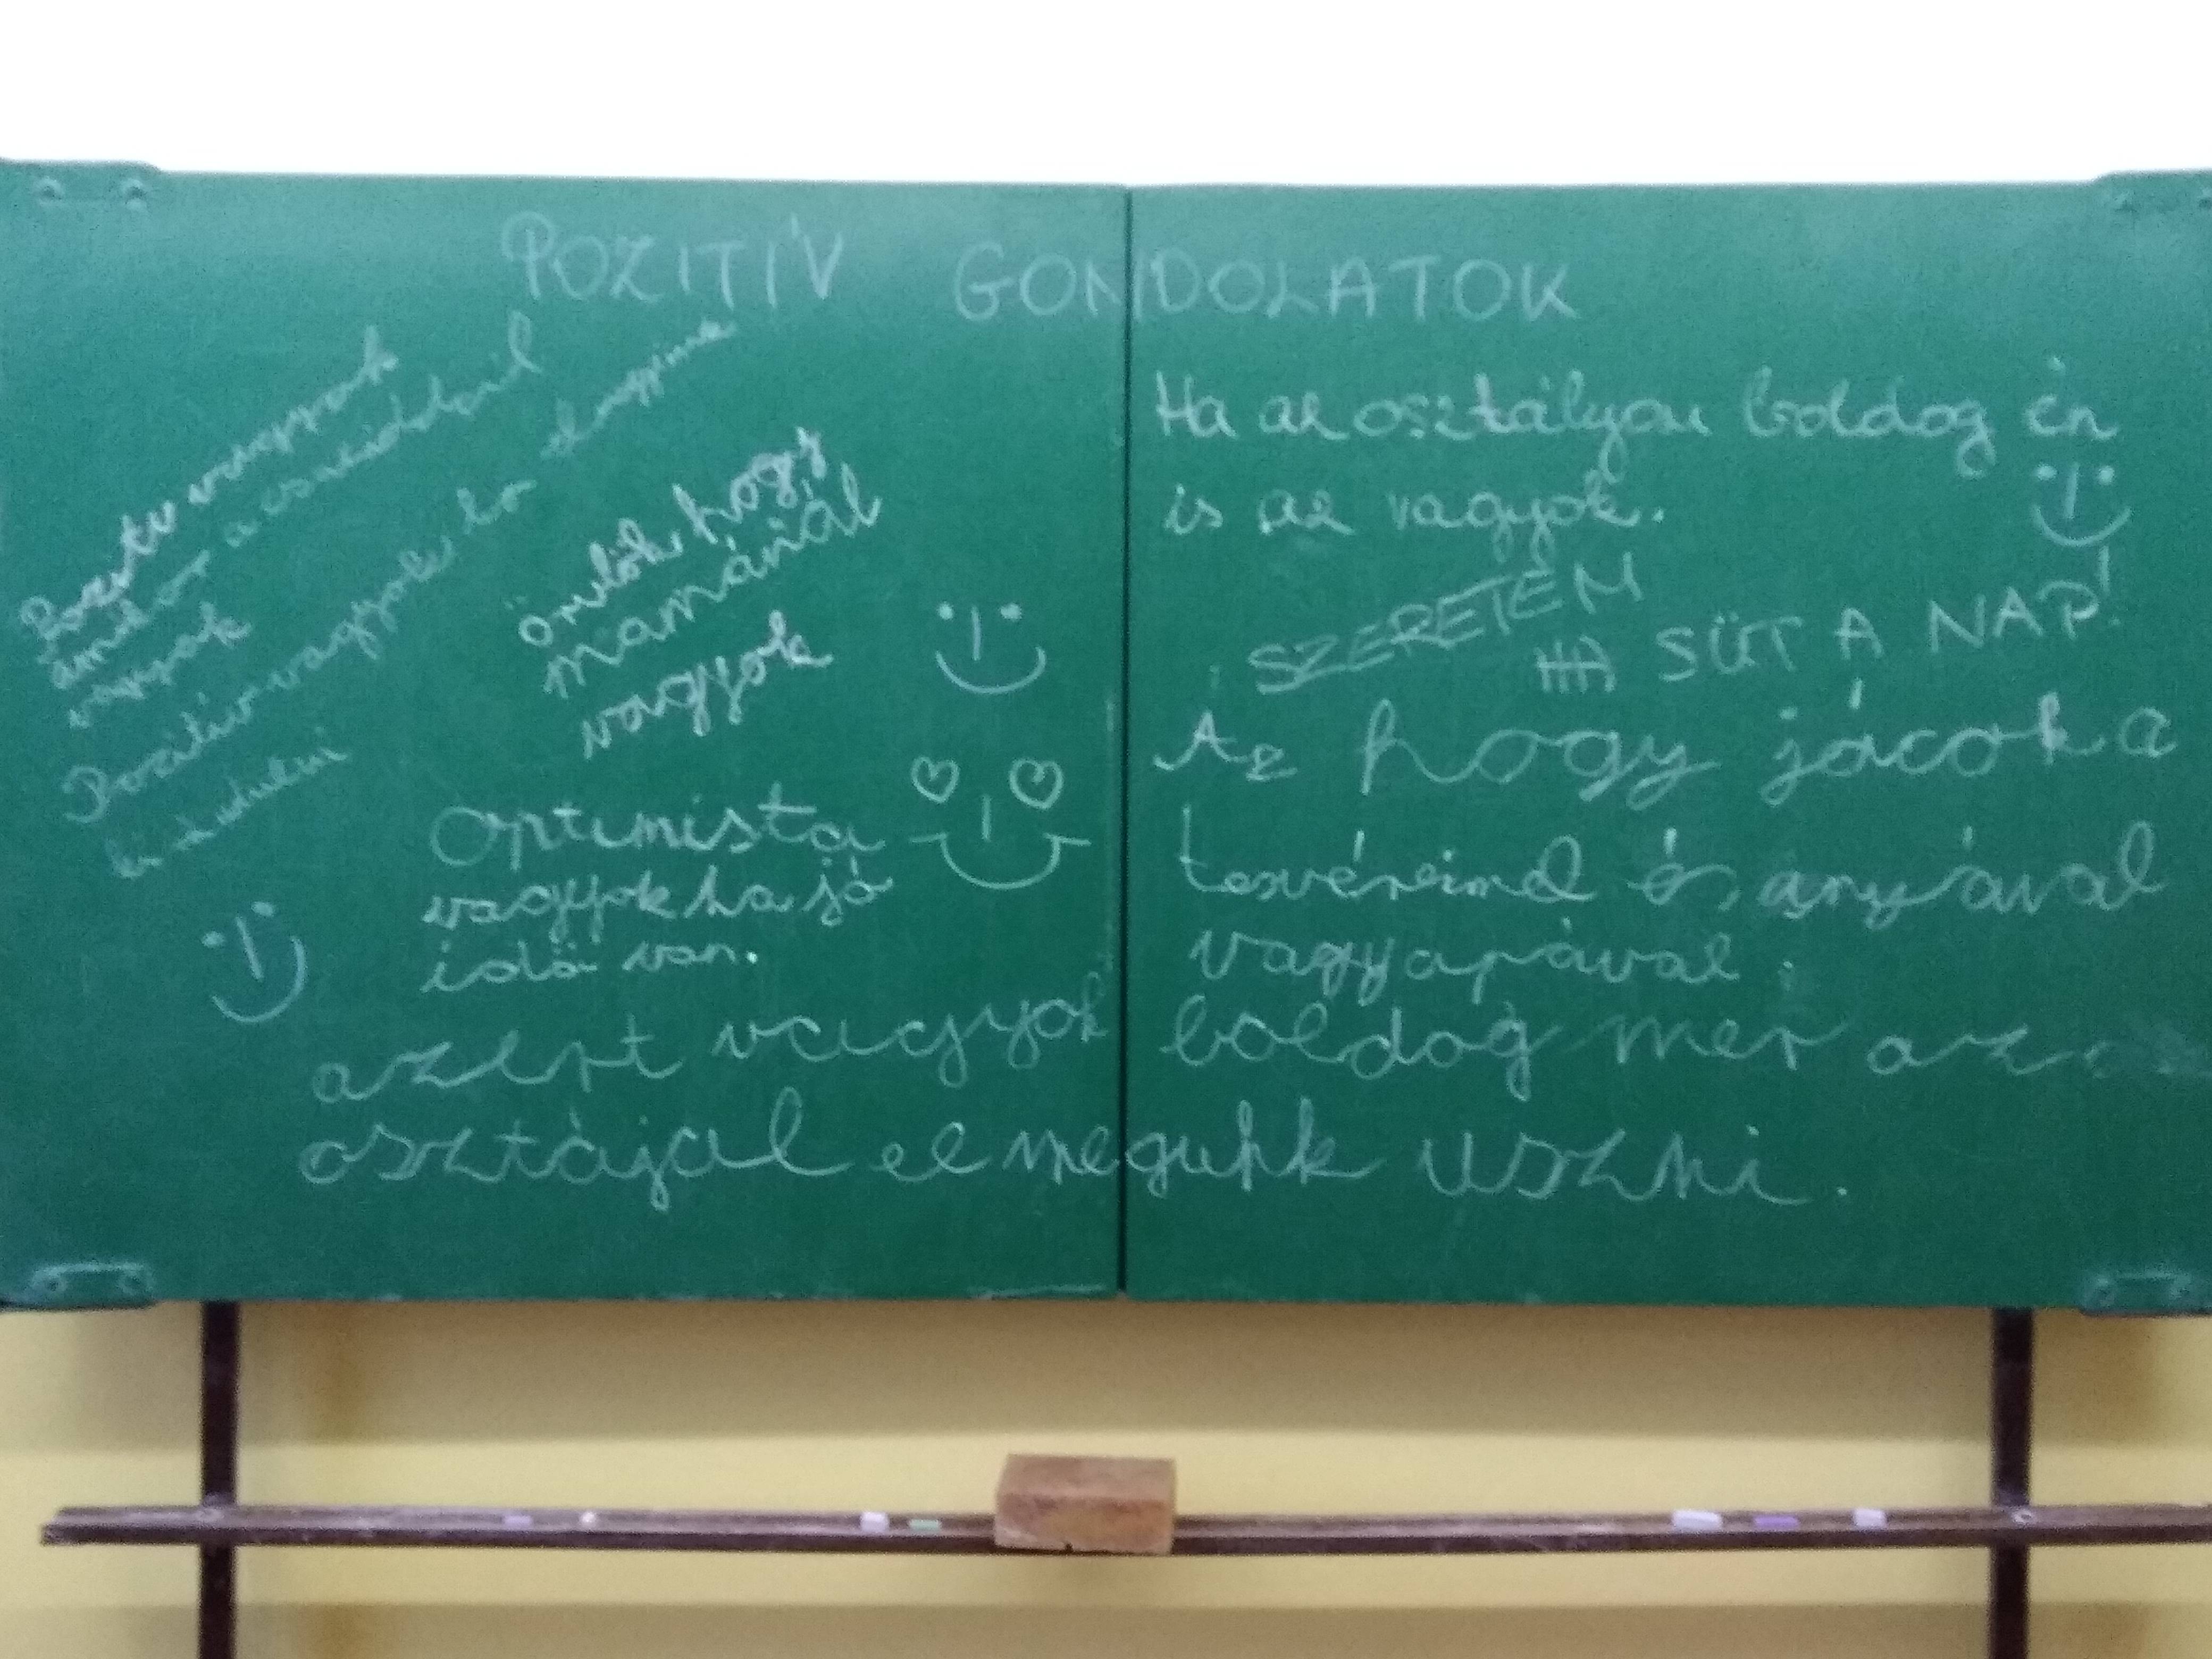 POZITÍV GONDOLATOK
Pozitív vagyok
amikor a családdal
vagyok
Pozitív vagyok ha elmegyünk
kirándulni
örülök hogy
mamánál
vagyok
Optimista
vagyok ha jó
idő van.
Ha az osztályom boldog én
is az vagyok.
SZERETEM
HA SÜT A NAP!
Az hogy jácok a
tesvéreimel és anyával
vagy apával.
azért vagyok boldog mer az
osztájal el megunk uszni.